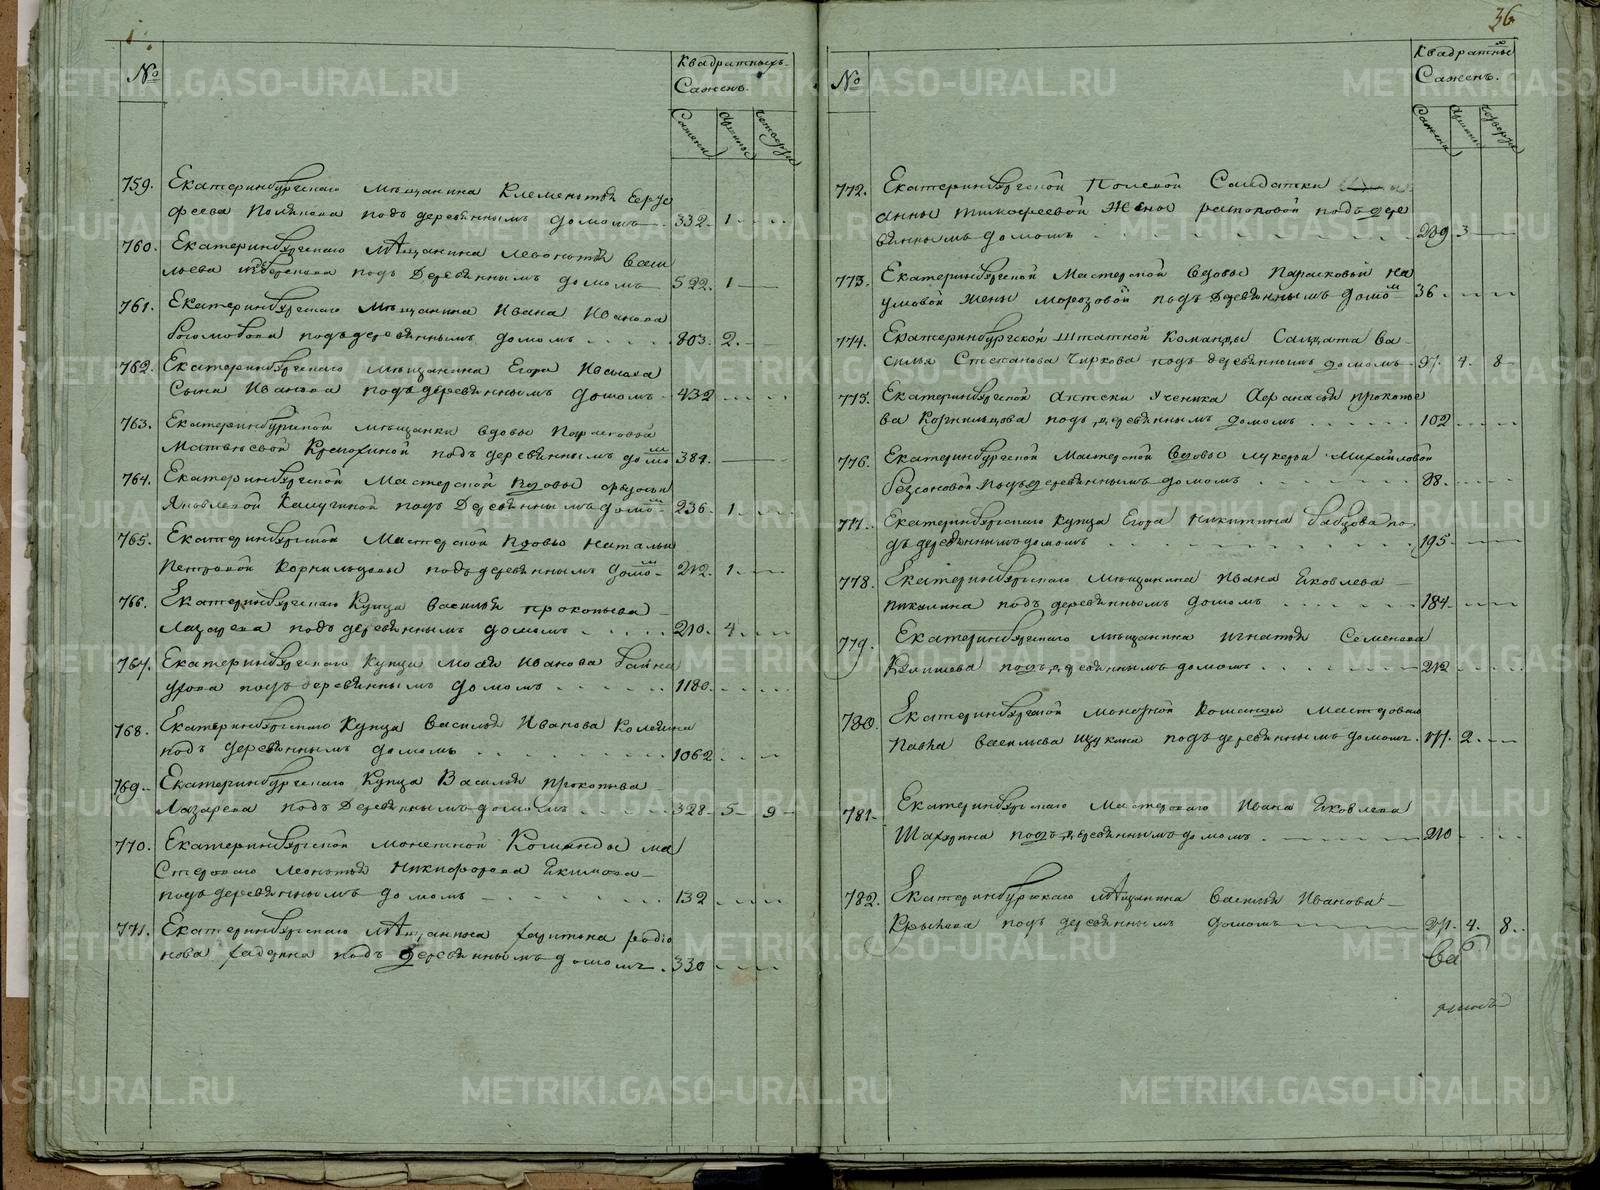 №
Квадратныхъ
Саженъ.
Сажени
Аршины
четверти
759. Екатеринбургскаго мѣщанина Клементія
под деревяннымъ домомъ 332. 1
760. Екатеринбургскаго мѣщанина Леонтія Васи
льева подъ деревяннымъ домомъ 522. 1
761. Екатеринбургскаго мѣщанина Ивана Иванова
подъ деревяннымъ домомъ 803. 2.
762. Екатеринбургскаго мѣщанина Егора Иванова
Сына Иванова подъ деревяннымъ домомъ 432
763. Екатеринбургской мѣщанки вдовы
Матвѣевой подъ деревяннымъ домомъ 384.
764. Екатеринбургской Мастерской вдовы Федосьи
Яковлевой Калугиной подъ деревяннымъ домомъ 236. 1
765. Екатеринбургской Мастерской вдовы Натальи
Петровой Корнильцовы подъ деревяннымъ домомъ 212. 1.
766. Екатеринбургскаго Купца Василья прокопьева
Лазарева подъ деревяннымъ домомъ 210. 4
767. Екатеринбургскаго Купца Иванова
подъ деревяннымъ домомъ 1180.
768. Екатеринбургскаго Купца Василья Иванова
подъ деревяннымъ домомъ 1062
769. Екатеринбургскаго Купца Василья прокопьева
Лазарева подъ деревяннымъ домомъ 328 5 9
770. Екатеринбургской монетной Команды ма
стероваго Леонтья Никифорова Екимова
подъ деревяннымъ домомъ 132
771. Екатеринбургскаго мѣщанина харитона родіо
нова подъ деревяннымъ домомъ 330
36
№
Квадратные
Саженъ.
Сажени
Аршины
четверти
772. Екатеринбургской Полевой Салдатки
анны тимофеевой Жены подъ дере
вяннымъ домомъ 209 3
773. Екатеринбургской Мастерской вдовы Парасковьи На
умовой жены морозовой подъ деревяннымъ домомъ 36
774. Екатеринбургской штатной Команды Салдата Ва
силья Степанова Чиркова подъ деревяннымъ домомъ 97. 4. 8
775. Екатеринбургской аптеки Ученика Афанасья прокопье
ва Корнильцова подъ деревяннымъ домомъ 102
776. Екатеринбургской Мастерской вдовы лукерьи Михайловой
Безсоновой подъ деревяннымъ домомъ 98.
777. Екатеринбургскаго Купца Егора Никитина по
дъ деревяннымъ домомъ 195
778. Екатеринбургскаго мѣщанина Ивана Яковлева
подъ деревяннымъ домомъ 184
779. Екатеринбургскаго мѣщанина игнатья Семенова
подъ деревяннымъ домомъ 212
780. Екатеринбургской монетной Команды мастероваго
Павла Васильева щукина подъ деревяннымъ домомъ 171. 2.
781. Екатеринбургскаго Мастероваго Ивана Яковлева
подъ деревяннымъ домомъ 210
782. Екатеринбургскаго мѣщанина Василья Иванова
подъ деревяннымъ домомъ 271. 4. 8.
METRIKI.GASO-URAL.RU